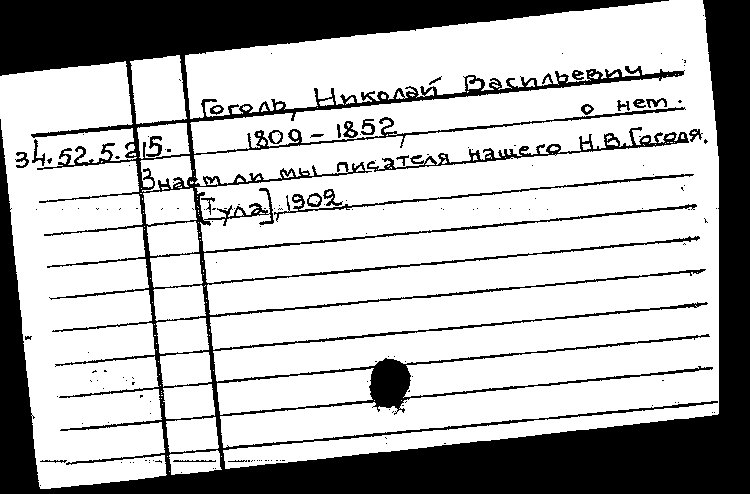 Гоголь, Николай Васильевич,
1809 – 1852,
о нем.
34.52.5.215.
Знаем ли мы писателя нашего Н.В.Гоголя.
[Тула], 1902.